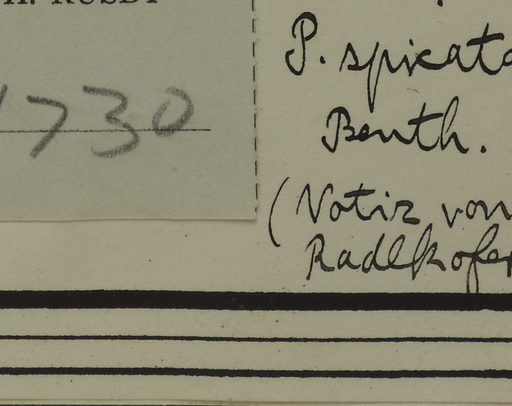 H. RUSBY
1730
P. spicata
Benth.
(Notiz von
Radlkofer